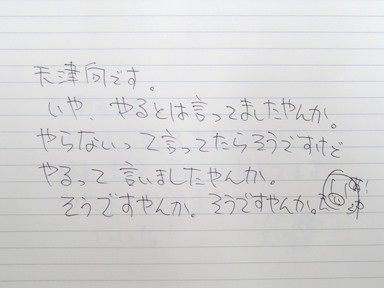 天津向です。
いや、やるとは言ってましたやんか。
やらないって言ってたらそうですけど
やるって言いましたやんか。
そうですやんか。そうですやんか。